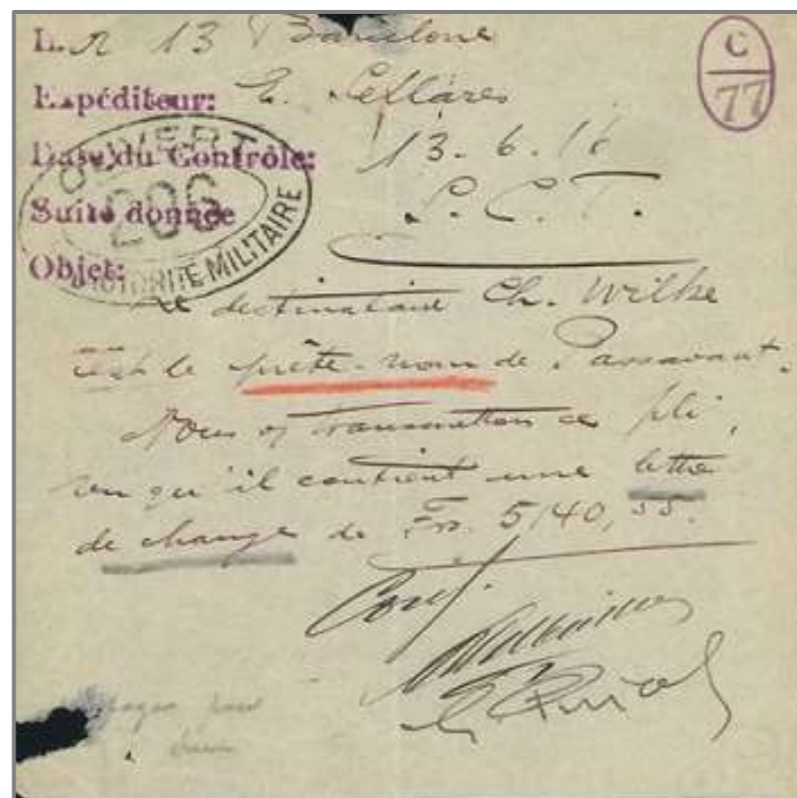 R 13 Barcelone
C
77
Expéditeur: E. Sellarès
Date du Contrôle: 13.6.16
Suite donnée L.C.T.
Objet:
OUVERT
206
AUTORITÉ MILITAIRE
Le destinataire Ch. Wilke
est le prête-nom de Passavant.
Nous transmettons ce pli,
vu qu'il contient une lettre
de change de Frs. 5140,55.
Conf.